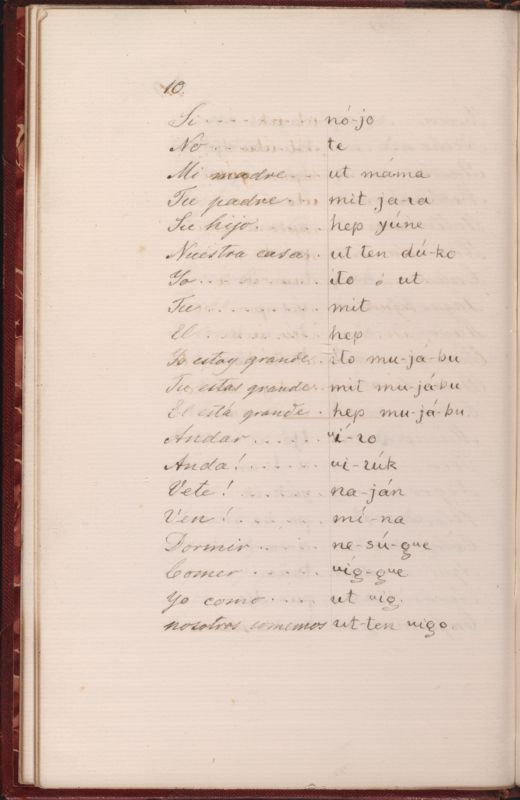 10.
Si . . . . . . nó-jo
No . . . te
Mi madre . . ut máma
Tu padre . mit ja-ra
Su hijo . hep yúne
Nuestra casa . ut-ten dú-ko
Yo . . . . . ito ó ut
Tu . . . . . . mit
El . . . . . . hep
Yo estoy grande . . ito mu-já-bu
Tu estas grande . . mit mu-já-bu
El está grande . hep mu-já-bu
Andar . . . . . uí-ro
Anda! . . . . . ui-rúk
Vete! na-ján
Ven! . . . . . mí-na
Dormir . . . . ne-sú-gue
Comer . . . . uíg-gue
Yo como . . . . ut uig.
nosotros comemos ut-ten uigo.